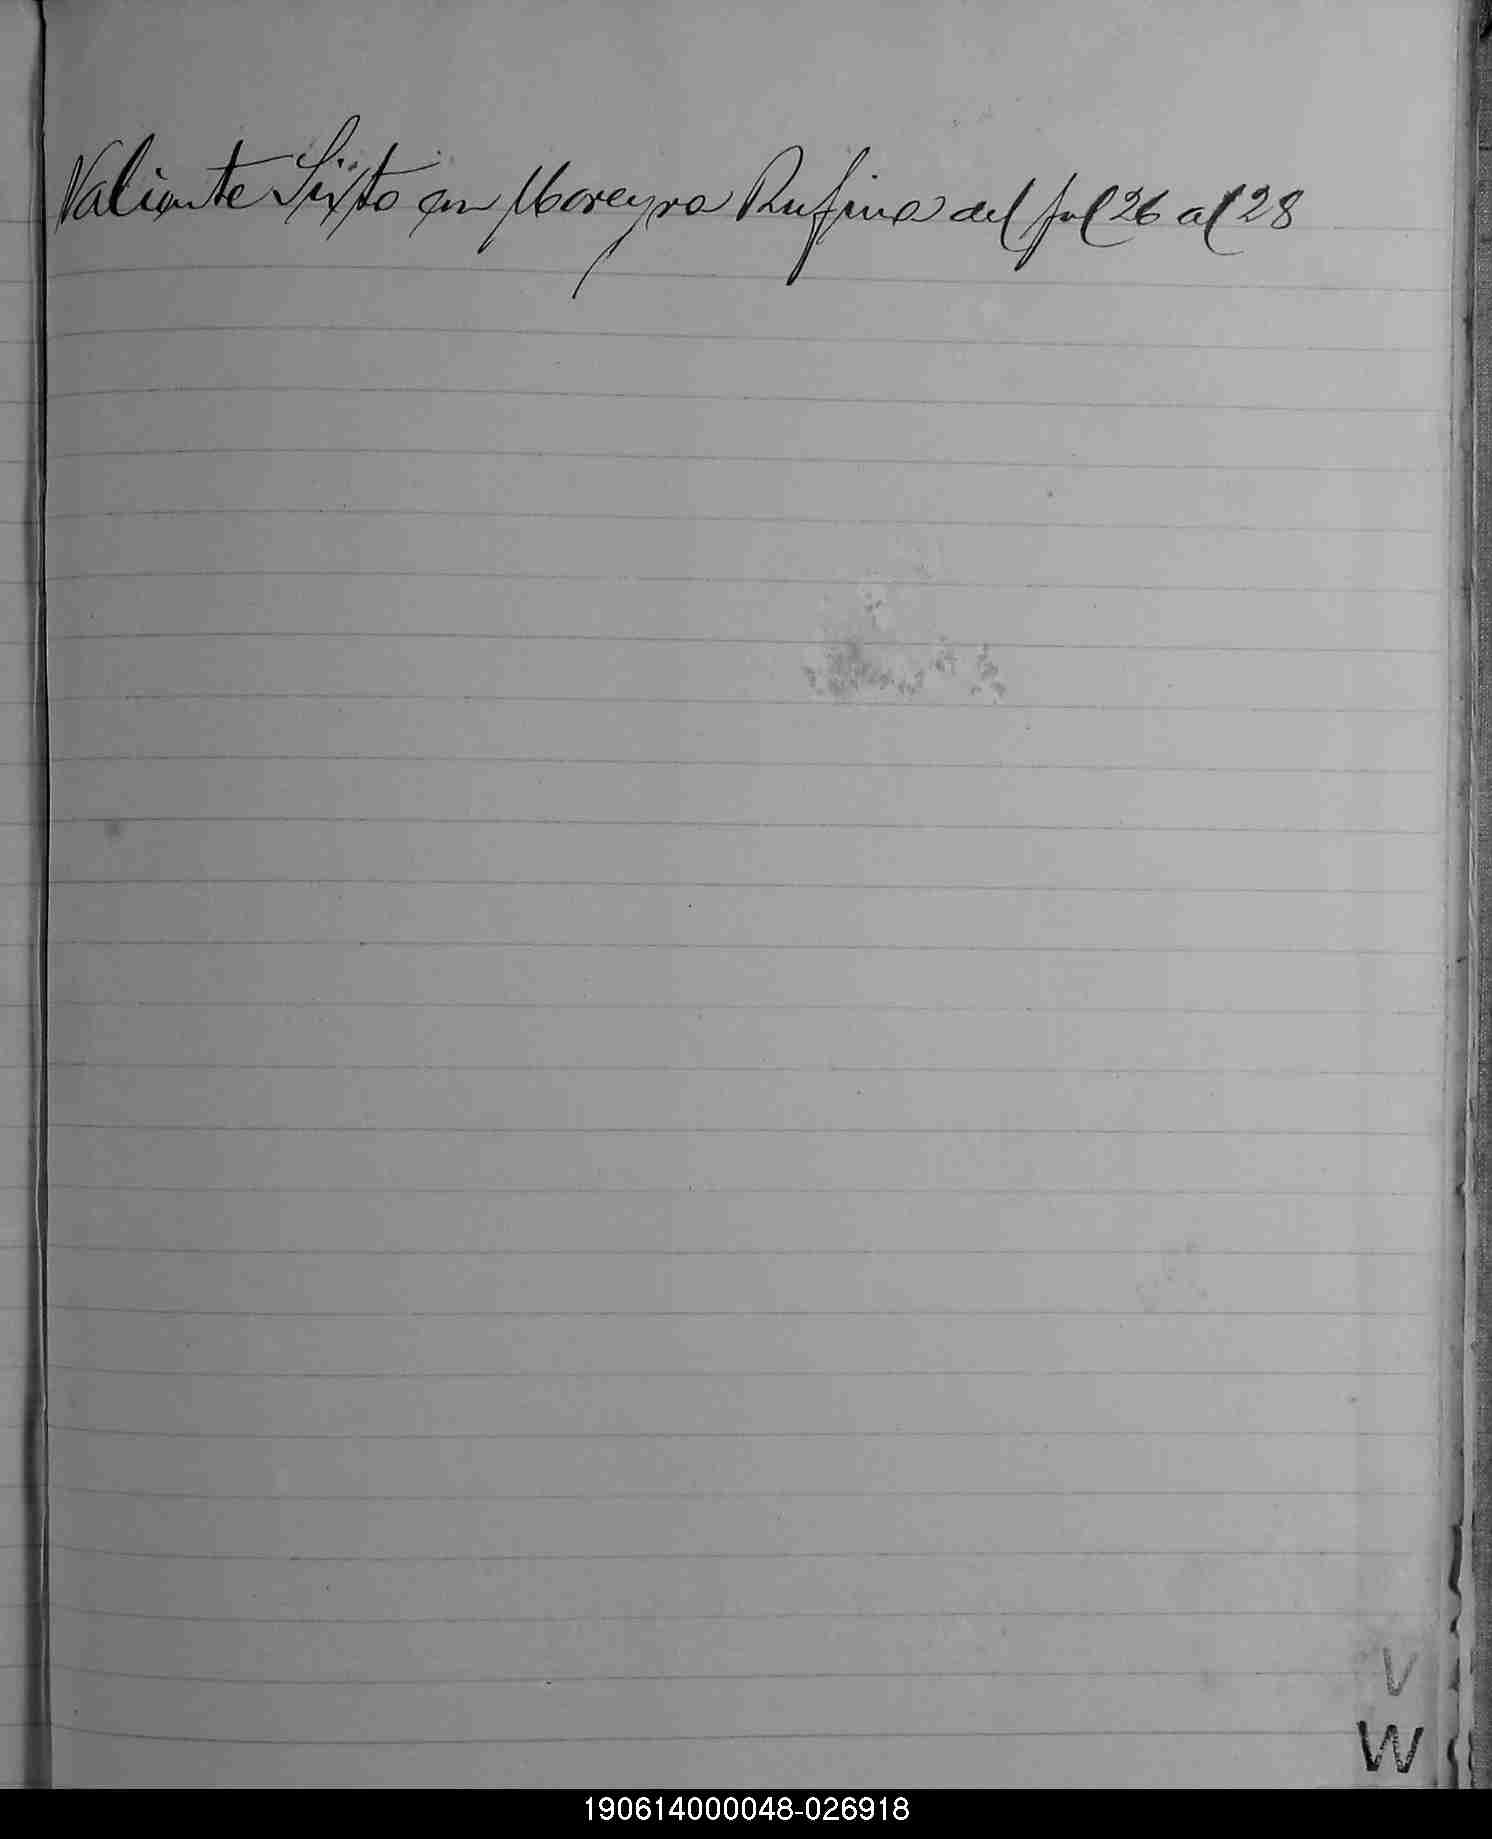 Valiente Sixto con Moreyra Rufina del fol 26 al 28
V
W
190614000048-026918